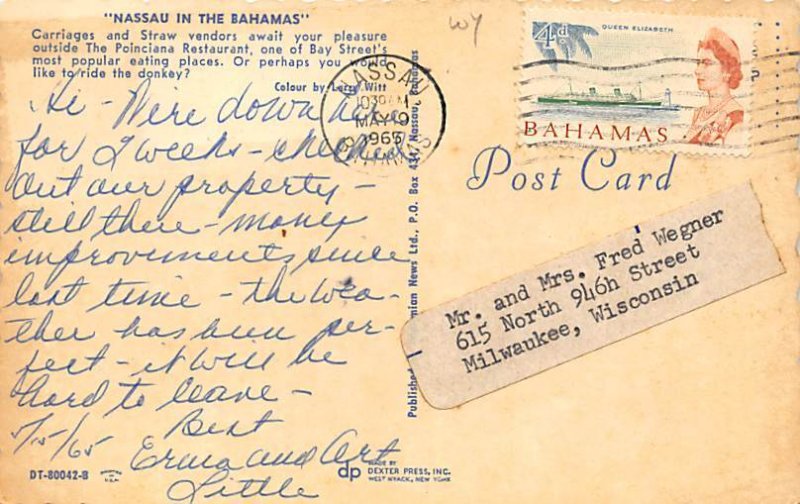 "NASSAU IN THE BAHAMAS"
Carriages and Straw vendors await your pleasure
outside The Poinciana Restaurant, one of Bay Street's
most popular eating places. Or perhaps you would
like to ride the donkey?
Colour by Larry Witt
Hi - We're down here
for 2 weeks - checked
out our property -
still there - many
improvements since
last time - the wea-
ther has been per-
fect - it will be
hard to leave -
Best
5/15/65
Erma and Art
Little
DT-80042-B
dp
MADE BY
DEXTER PRESS, INC.
WEST NYACK, NEW YORK
Nassau, Bahamas
News Ltd., P.O. Box
Published
NASSAU
MAY 19
1965
BAHAMAS
4d
QUEEN ELIZABETH
BAHAMAS
Post Card
Mr. and Mrs. Fred Wegner
615 North 946h Street
Milwaukee, Wisconsin